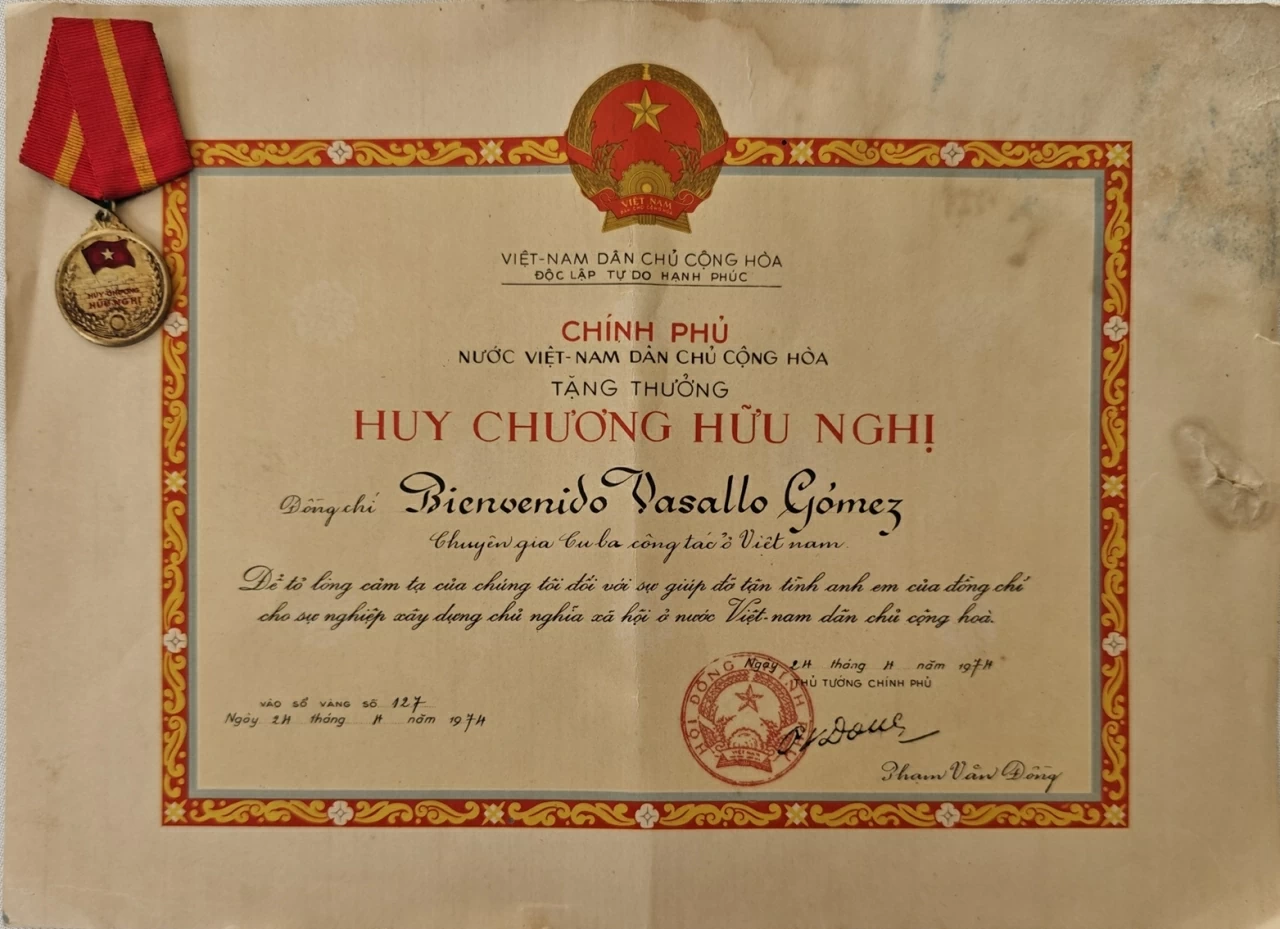 HUY CHƯƠNG
HỮU NGHỊ
VIỆT NAM
VIỆT-NAM DÂN CHỦ CỘNG HÒA
ĐỘC LẬP TỰ DO HẠNH PHÚC
CHÍNH PHỦ
NƯỚC VIỆT-NAM DÂN CHỦ CỘNG HÒA
TẶNG THƯỞNG
HUY CHƯƠNG HỮU NGHỊ
Đồng chí Bienvenido Vasallo Gómez
Chuyên gia Cu ba công tác ở Việt nam
Để tỏ lòng cảm tạ của chúng tôi đối với sự giúp đỡ tận tình anh em của đồng chí
cho sự nghiệp xây dựng chủ nghĩa xã hội ở nước Việt-nam dân chủ cộng hoà.
Ngày 24 tháng 4 năm 1974
THỦ TƯỚNG CHÍNH PHỦ
VÀO SỔ VÀNG SỐ 127
Ngày 24 tháng 4 năm 1974
HỘI ĐỒNG CHÍNH PHỦ
PVDong
Phạm Văn Đồng